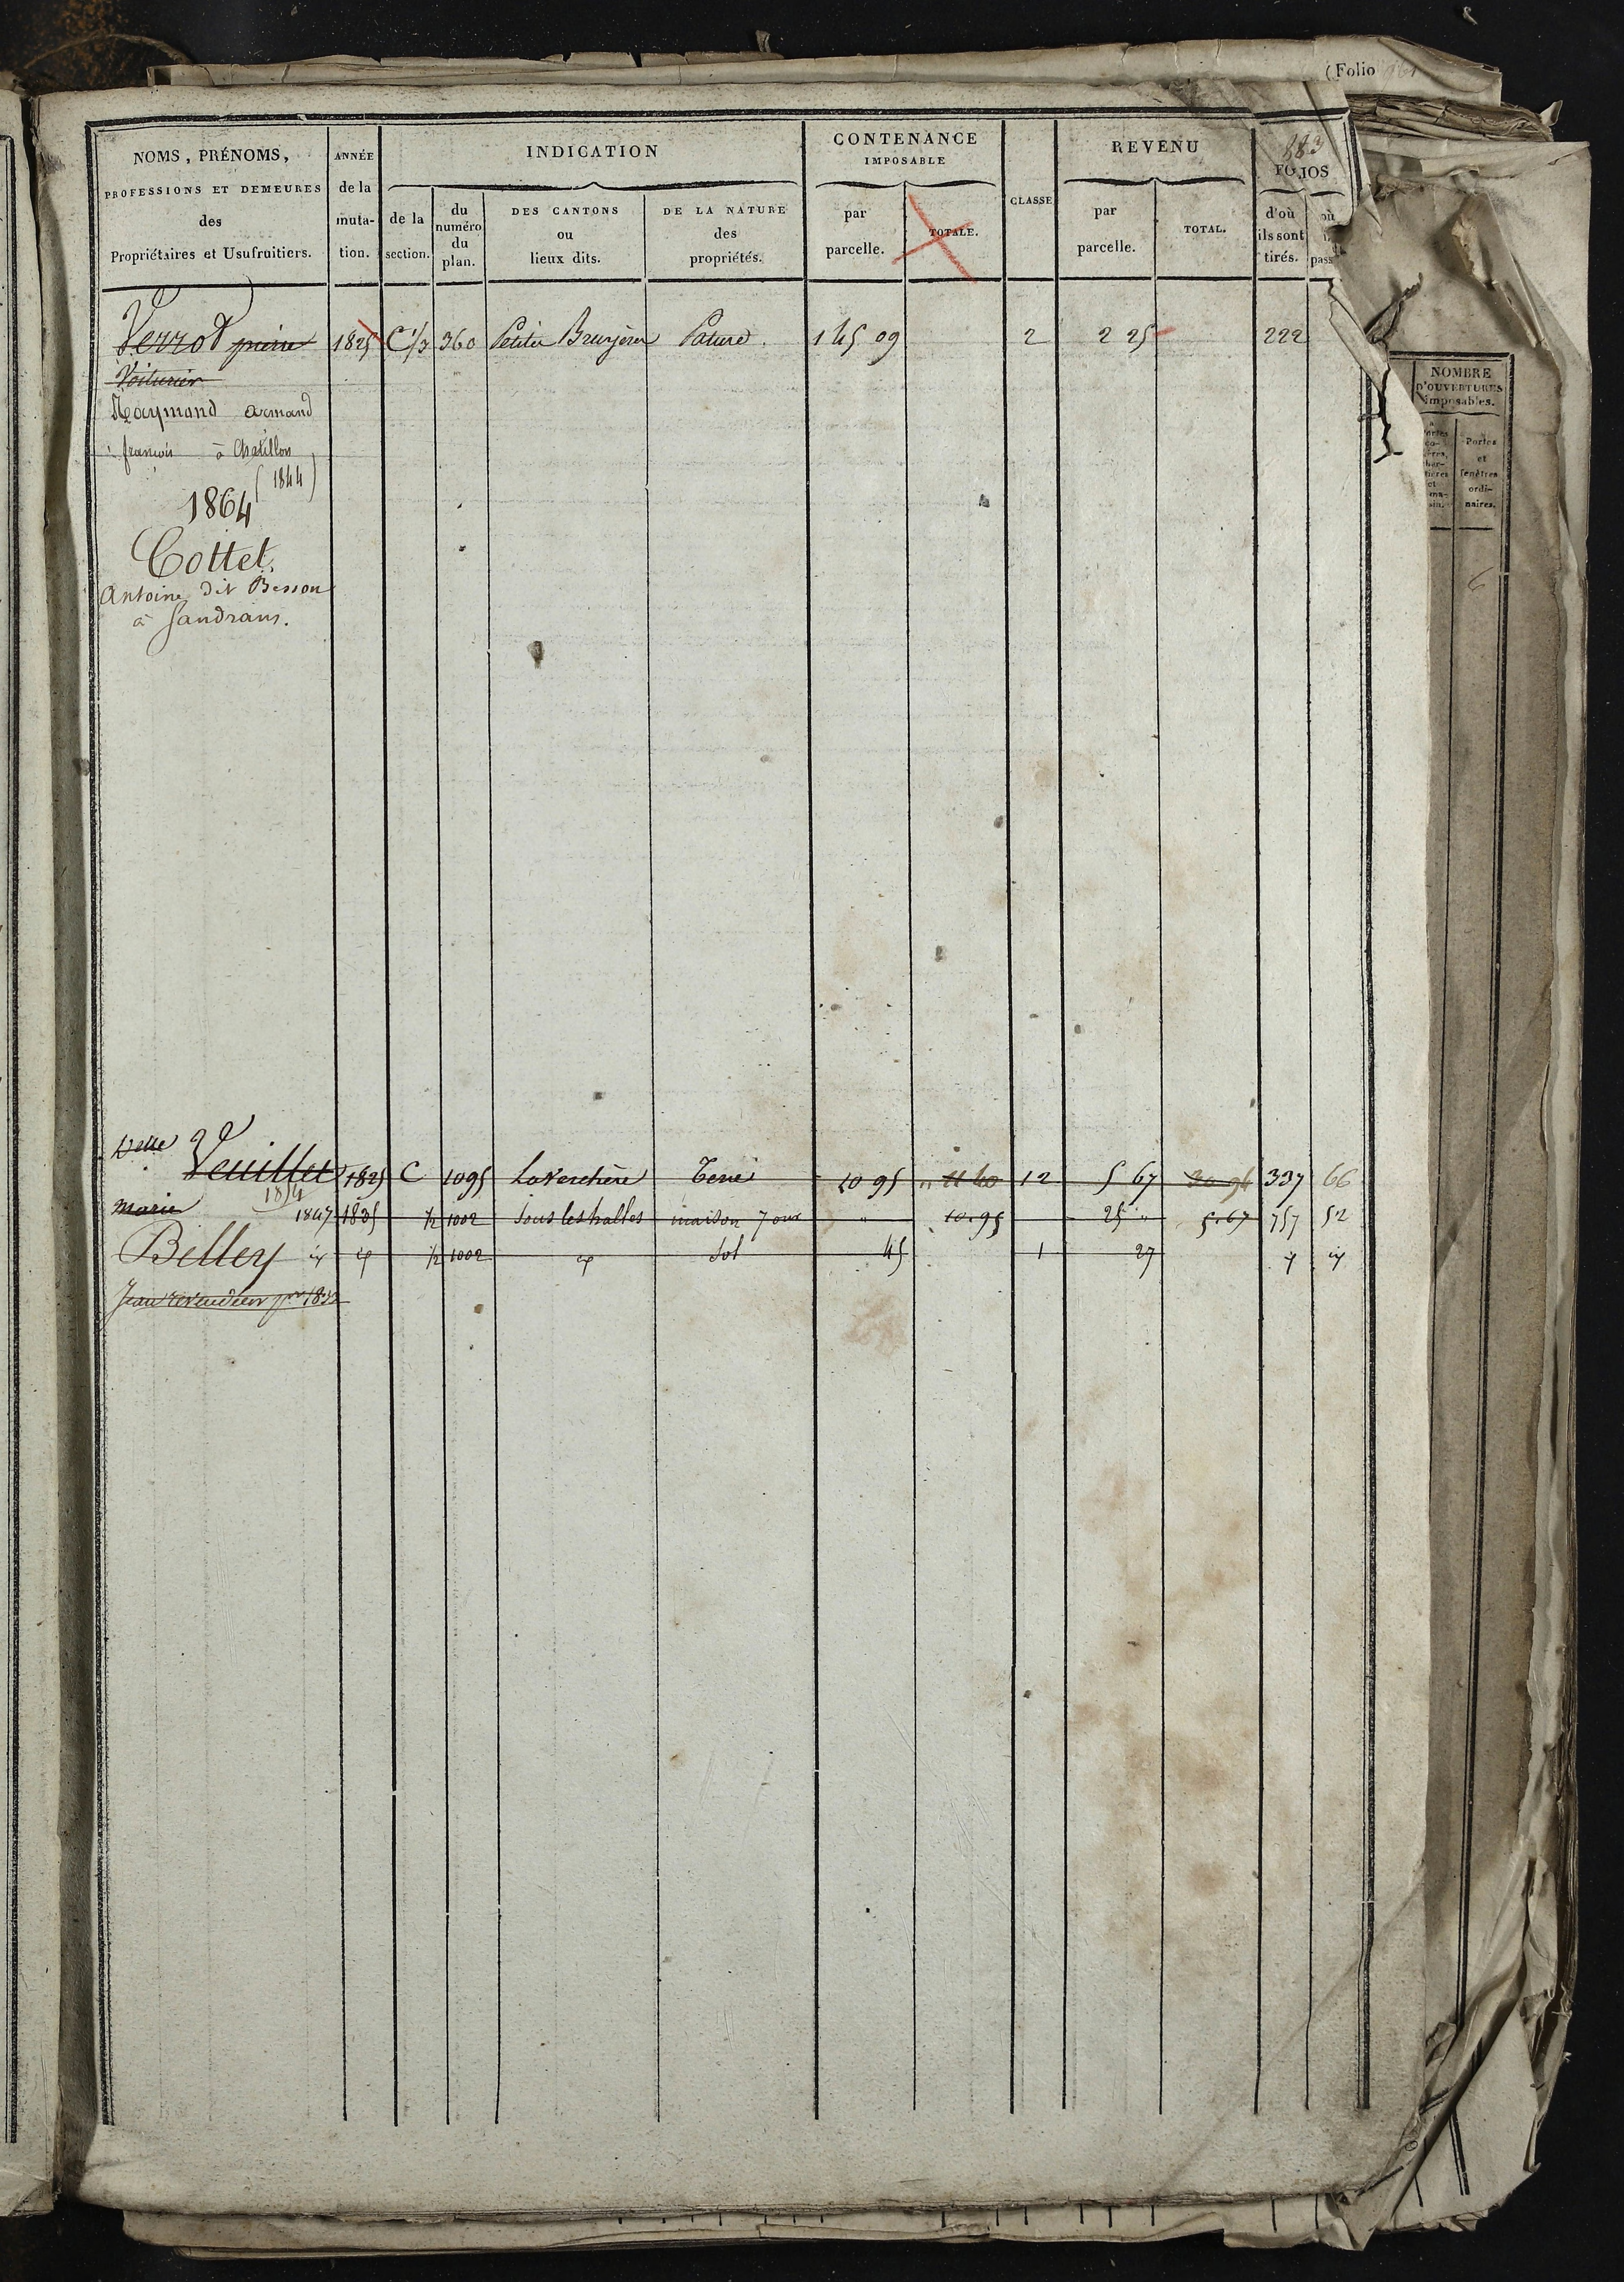 (Folio
883
NOMS, PRÉNOMS,
PROFESSIONS ET DEMEURES
des
Propriétaires et Usufruitiers.
ANNÉE
de la
muta-
tion.
INDICATION
de la
section.
du
numéro
du
plan.
DES CANTONS
ou
lieux dits.
DE LA NATURE
des
propriétés.
CONTENANCE
IMPOSABLE
par
parcelle.
TOTALE.
CLASSE
REVENU
par
parcelle.
TOTAL.
FOLIOS
d'où
ils sont
tirés.
où
pass
Verrot pierre 1825 C 1/3 360 Petites Bruyères Pature. 1 45 09 2 2 25 222
Voiturier
Raymand armand
françois à Chatillon
(1844)
1864
Cottet
Antoine dit Besson
à Sandrans.
Veuillet 1825 C 1095 La Verchère Terre 10 95 11 40 12 5 67 30 94 337 66
1854
marie 1847 1835 1/2 1002 Sous les halles maison 7 ouv " 10.95 25 " 5.67 757 52
Bellery 1/2 1002 Sol 45 1 27
Jean revendeur pr 1833
NOMBRE
D'OUVERTURES
imposables.
Portes
et
fenêtres
ordi-
naires.
6